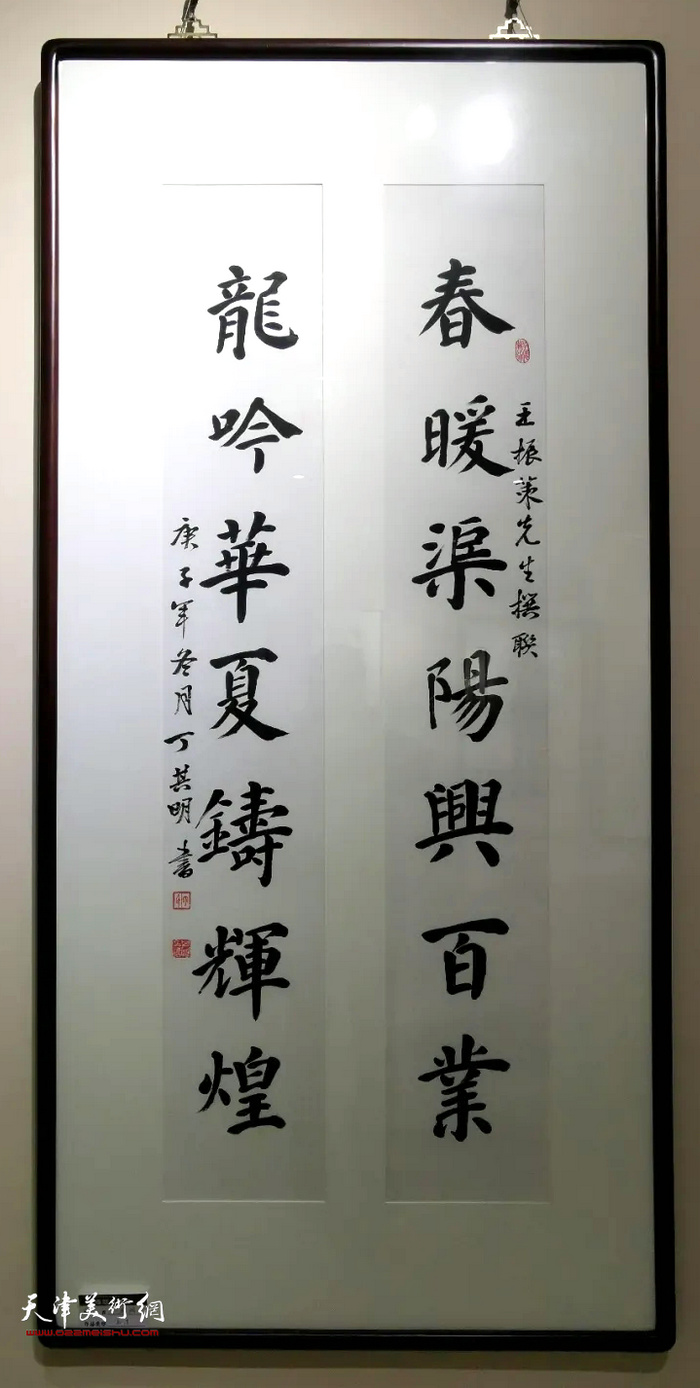 春暖渠陽興百業
王振策先生撰聯
龍吟華夏鑄輝煌
庚子年冬月丁其明書
天津美術網
www.022meishu.com